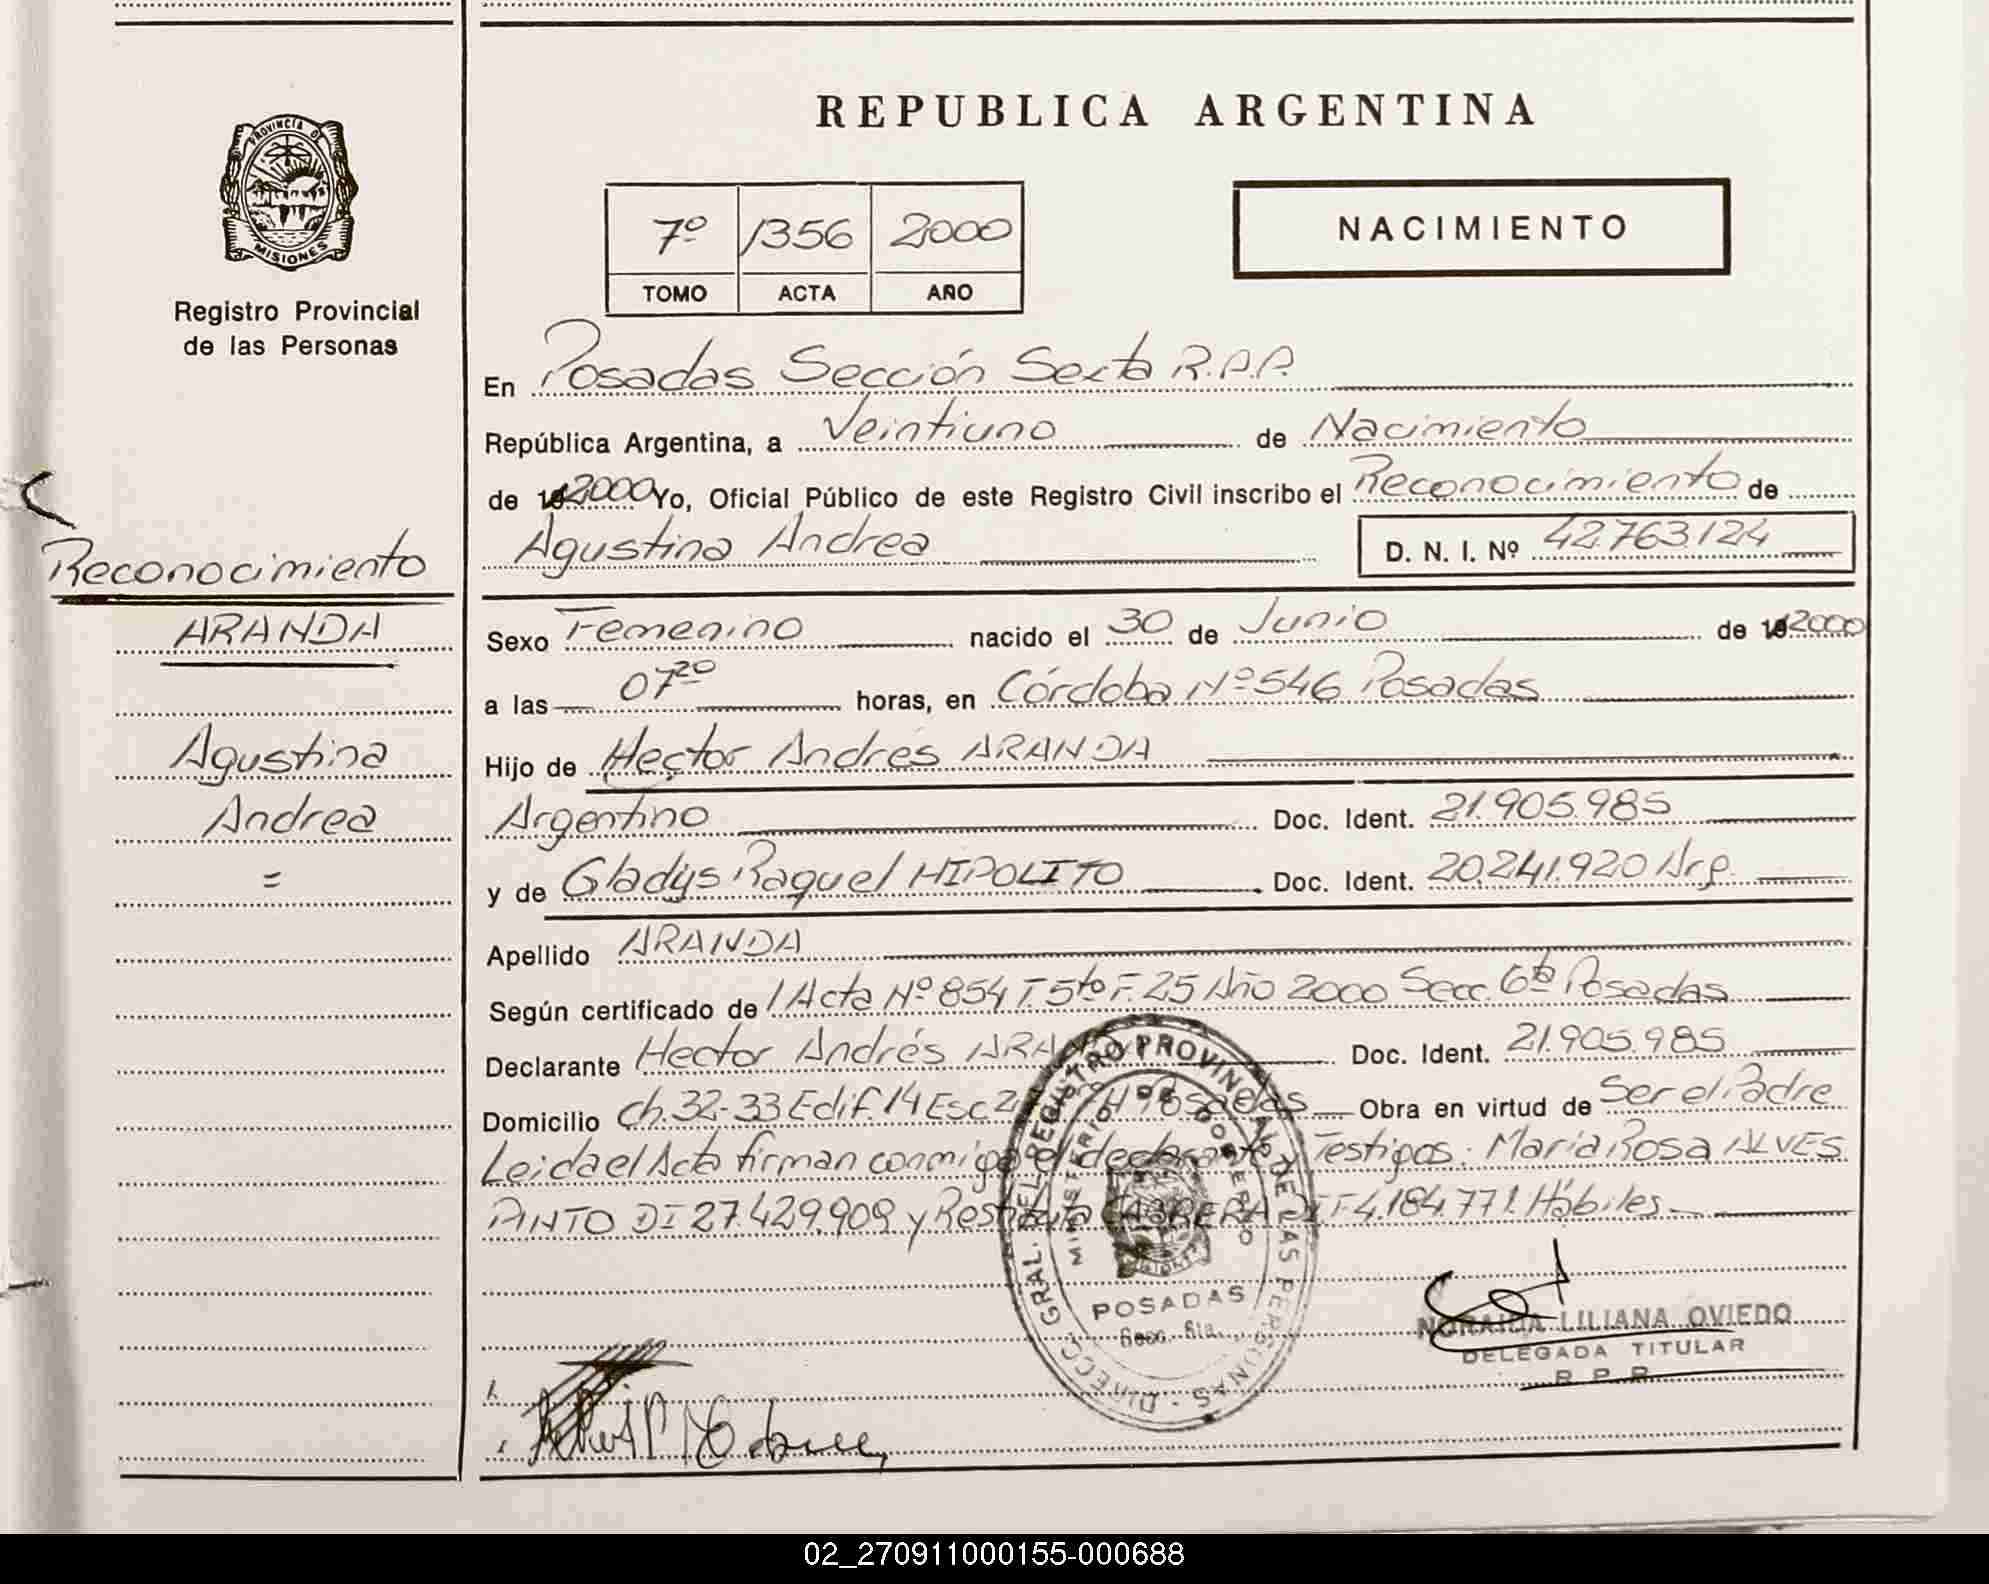 PROVINCIA DE
MISIONES
Registro Provincial
de las Personas
Reconocimiento
ARANDA
Agustina
Andrea
=
REPUBLICA ARGENTINA
7º 1356 2000
TOMO ACTA AÑO
NACIMIENTO
En Posadas Sección Sexta R.P.P.
República Argentina, a Veintiuno de Nacimiento
de 2000 Yo, Oficial Público de este Registro Civil inscribo el Reconocimiento de
Agustina Andrea D. N. I. Nº 42.763.124
Sexo Femenino nacido el 30 de Junio de 2000
a las 07²⁰ horas, en Córdoba Nº 546 Posadas
Hijo de Hector Andrés ARANDA
Argentino Doc. Ident. 21.905.985
y de Gladys Raquel HIPOLITO Doc. Ident. 20.241.920 Arg.
Apellido ARANDA
Según certificado de 1 Acta Nº 854 T. 5to F. 25 Año 2000 Secc. 6ta Posadas
Declarante Hector Andrés ARANDA Doc. Ident. 21.905.985
Domicilio Ch. 32-33 Edif. 14 Esc. 2 Posadas Obra en virtud de Ser el Padre
Leida el Acta firman conmigo el declarante Testigos: Maria Rosa ALVES
PINTO DI 27.429.909 y Restituta CABRERA DI F 4.184.771. Hábiles
DIRECC. GRAL. DEL REGISTRO PROVINCIAL DE LAS PERSONAS
MINISTERIO DE GOBIERNO
POSADAS
Secc. 6ta.
NORAIDA LILIANA OVIEDO
DELEGADA TITULAR
R. P. P.
02_270911000155-000688